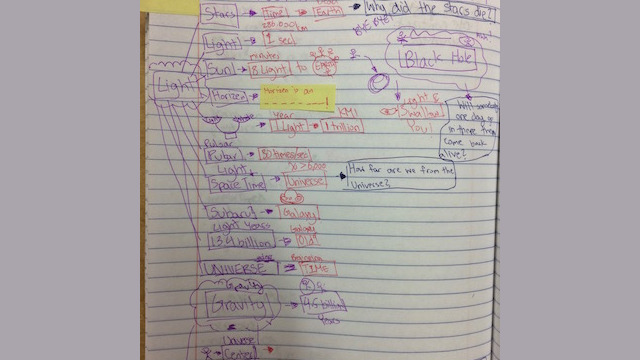 Stars Time Earth Why did the stars die?
BYE BYE!
Light 1 sec
Black Hole
minutes
Sun 8 Light to Earth
Light
Horizon Horizon is an
Light & Swallows You!
Will somebody one day go in there then come back alive?
Year KM!
1 Light 1 trillion
Pulsar
Pulsar 30 times/sec
Light
Space Time Universe How far are we from the Universe?
Subaru Galaxy
Light Years Galaxy
13.4 billion "Old"
edge Beginning
UNIVERSE = TIME
Gravity
Gravity 4.5 billion
Years
Universe
Center